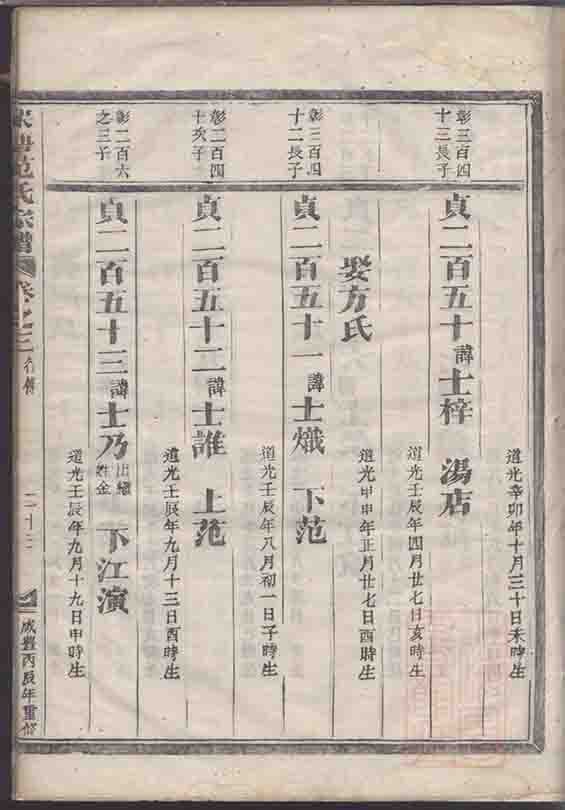 道光辛卯年十月三十日未時生
彰三百四
十三長子
貞二百五十諱士梓 湯店
道光壬辰年四月廿七日亥時生
娶方氏
道光甲申年正月廿七日酉時生
彰三百四
十二長子
貞二百五十一諱士熾 下范
道光壬辰年八月初一日子時生
彰二百四
十次子
貞二百五十二諱士誰 上范
道光壬辰年九月十三日酉時生
彰二百六
之三子
貞二百五十三諱士乃出繼姓金 下江演
道光壬辰年九月十九日申時生
范氏宗譜 卷之三 行傳 二十三 咸豐丙辰年重修